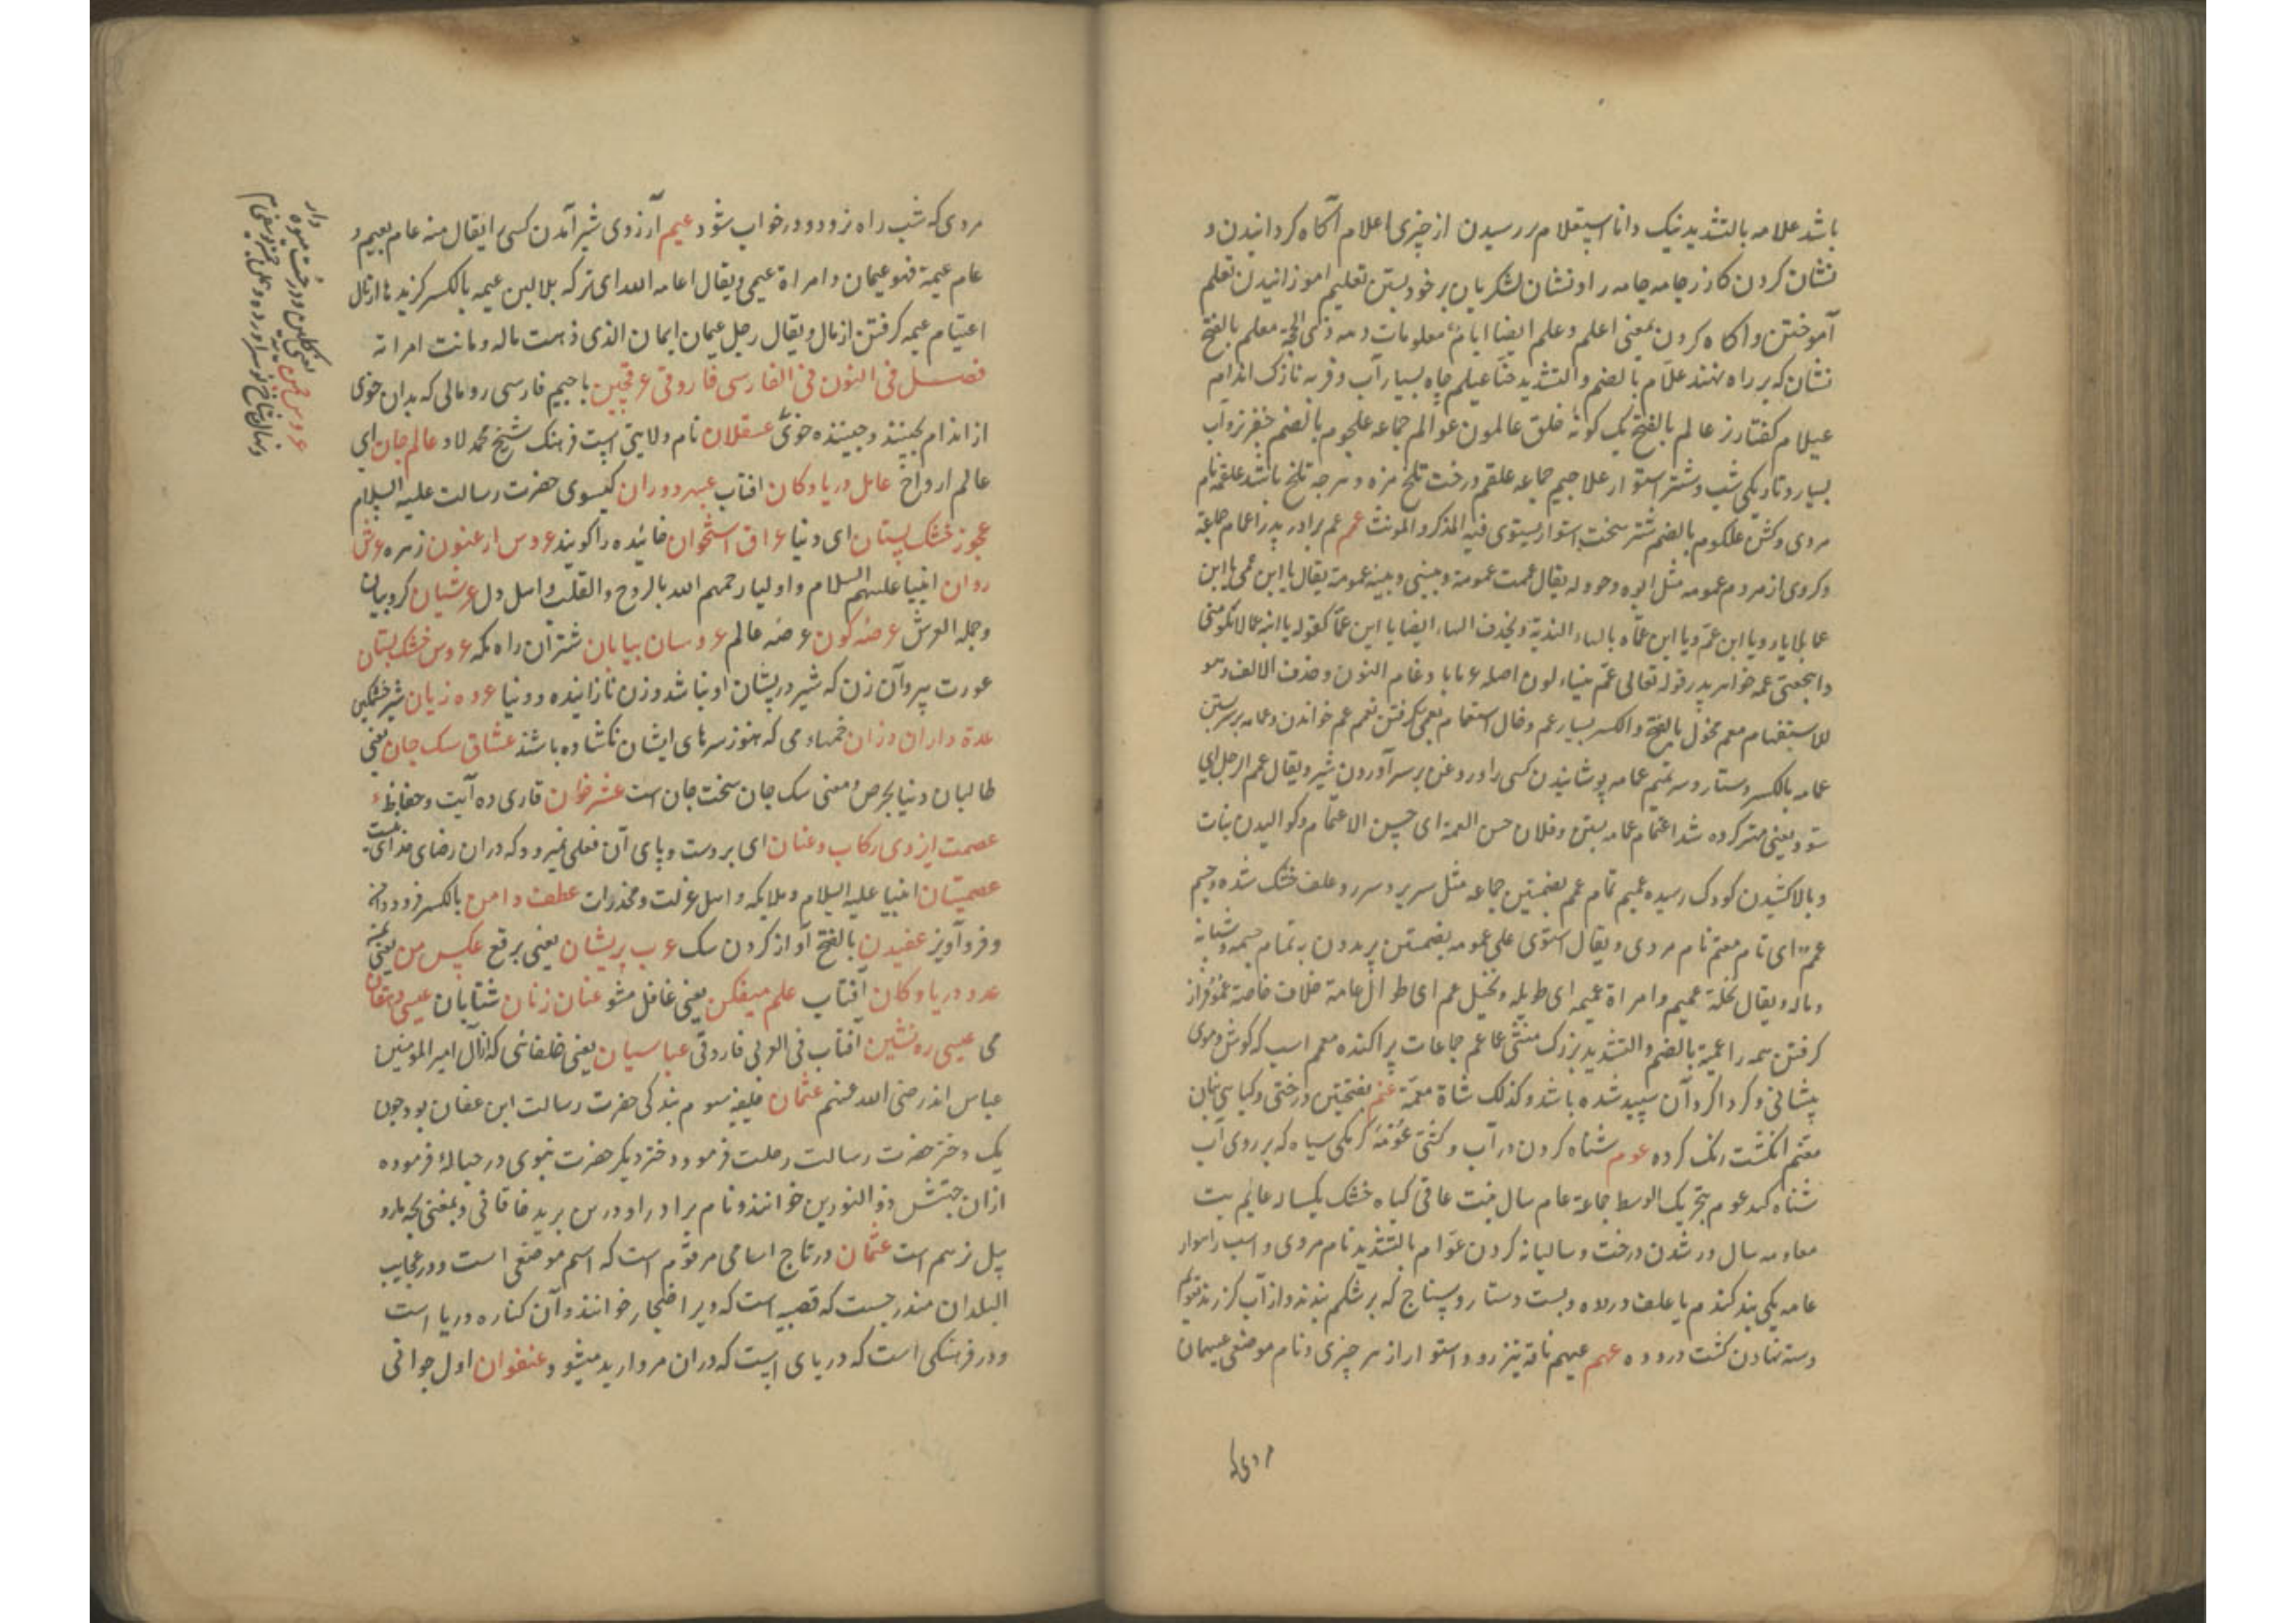 باشد علامه بالتشدید نیک دانا استعلام بررسیدن از چیزی اعلام آگاه کردانیدن و
نشان کردن کازر جامه جامه را و نشان لشکریان بر خود بستن تعلیم اموزانیدن تعلم
آموختن و اکاه کردن بمعنی اعلم و علم ایضا ایام معلومات دهه ذی الحجة معلم بالفتح
نشان که بر راه نهند علام بالضم و التشدید حنا عیلم چاه بسیار آب و فربه نازک اندام
عیلام کفتار نر عالم بالفتح یک کونه خلق عالمون عوالم جماعه علجوم بالضم خفر نر و آب
بسیار و تاریکی شب و شتر استوار علاجیم جماعه علقم درخت تلخ مزه و هرچه تلخ باشد علقمه نام
مردی وکش علکوم بالضم شتر سخت استوار یستوی فیه المذکر و المونث عمم عم برادر پدر اعمام جماعة
و کروی از مردم عمومه مثل ابوه و حووله یقال عمت عمومة و بینی و بینه عمومة یقال یا ابن عمی یا ابن
عما بلا یاء و یا ابن عم و یا ابن عماه بالهاء الندبة و بحذف الهاء ایضا یا ابن عما کقوله یا ابنه عما لا تلومنی
و اهجعی عمه خواهر پدر قوله تعالی عم یتساءلون اصله عما با دغام النون و حذف الالف و هو
للاستفهام معم مخول بالفتح و الکسر بسیار عم و خال استعمام بعمی کرفتن تعمم عم خواندن و عمامه بر سر بستن
عمامه بالکسر دستار و سر تعمیم عمامه پوشانیدن کسی را و روغن بر سر آوردن شیر و یقال عمم الرجل ای
سود یعنی مهتر کرده شد اعتمام عمامه بستن و فلان حسن العمة ای حسن الاعتمام و کوالیدن نبات
و بالا کشیدن کودک رسیده عمیم تمام عمم بضمتین جماعه مثل سریر و سرر و علف خشک شده و جسم
عمم ای تام معتم نام مردی و یقال استوی علی عمومه بضمتین پریدون به تمام جسمه و شبابه
و ماله و یقال نخلة عمیم و امراة عمیمه ای طویله و نخیل عم ای طوال عامة خلاف خاصة عموم فراز
کرفتن همه را عمیة بالضم و التشدید بزرک منشی عماعم جماعات پراکنده معمم اسب که کوش و موی
پیشانی و کردا کرد آن سپید شده باشد و کذلک شاة معممة عنم بفتحتین درختی و کیاهی نبان
معنم انکشت رنک کرده عوم شناه کردن در آب و کشتی عومه کرمکی سیاه که بر روی آب
شناه کند عوم بتحریک الوسط جماعة عام سال نبت عاقی کیاه خشک یکساله عایم بت
معاومه سال ور شدن درخت و سالیانه کردن عوام بالتشدید نام مردی و اسب راهوار
عامه یکی بند کندم یا علف درده و بست دستار و سپناج که بر شکم بندند و از آب کزرند تعویم
دسته نهادن کشت دروده عهم عیهم ناقه تیز رو و استوار از هر چیزی و نام موضعی عیهمان
مردی که
مردی که شب راه نرود و در خواب شود عیم آرزوی شیر آمدن کسی را یقال منه عام یعیم و
عام عیمة فهو عیمان و امراة عیمی و یقال اعامه الله ای ترکه بلا لبن عیمه بالکسر کزیده از مال
اعتیام عیمه کرفتن از مال و یقال رجل عیمان ایمان الذی ذهبت ماله و ماتت امراته
فصــل فی النون فی الفارسی فاروقی عرقچین با جیم فارسی رومالی که بدان خوی
از اندام بچینند و چیننده خوی عسقلان نام ولایتی است فرهنک شیخ محمد لاد عالم جان ای
عالم ارواح عامل دریا و کان افتاب عبهر دوران کیسوی حضرت رسالت علیه السلام
عجوز خشک پستان ای دنیا عراق استخوان خائیده را کویند عروس ارغنون زن زهره عرش
روان انبیا علیهم السلام و اولیا رحمهم الله بالروح و القلب و اهل دل عرشیان کروبیان
و حمله العرش عرضه کون عرضه عالم عروسان بیابان شتران راه مکه عروس خشک پستان
عورت پیر و آن زن که شیر در پستان او نباشد و زن نازانیده و دنیا عروه زیان شیر خشمکین
عده داران رزان خمها و می که هنوز سرهای ایشان نکشاده باشند عشاق سک جان یعنی
طالبان دنیا بحرص و معنی سک جان سخت جان است عشر خوان قاری ده آیت و حفاظ
عصمت ایزدی رکاب و عنان ای بر دست و پای آن فعلی نمیرود که دران رضای خدای نیست
عصمتیان انبیا علیه السلام و ملایکه و اهل عزلت و مخدرات عطف دامن بالکسر فرود دامن
و فرو آویز عفیدن بالفتح آواز کردن سک عرب پریشان یعنی برقع عکس من یعنی
عدد دریا و کان آفتاب علم میفکن یعنی غافل مشو عنان زنان شتابان عیسی دهقان
می عیسی ره نشین آفتاب فی العربی فاروقی عباسیان یعنی خلفائی که از آل امیر المومنین
عباس اند رضی الله عنهم عثمان خلیفه سوم بندکی حضرت رسالت ابن عفان بود چون
یک دختر حضرت رسالت رحلت فرمود دختر دیکر حضرت نبوی در حبالهٔ فرموده
ازان جهتش ذو النورین خوانند و نام برادر او در من برید خاقانی و بمعنی بچه مار و
پیل نر هم است عثمان در تاج اسامی مرقوم است که اسم موضعی است و در عجایب
البلدان مندرجست که قصبه است که ویرا ضحار خوانند و آن کناره دریا است
و در فرهنکی است که دریای است که دران مروارید میشود عنفوان اول جوانی
دار
کلین و درخت میوه
عروس چمن